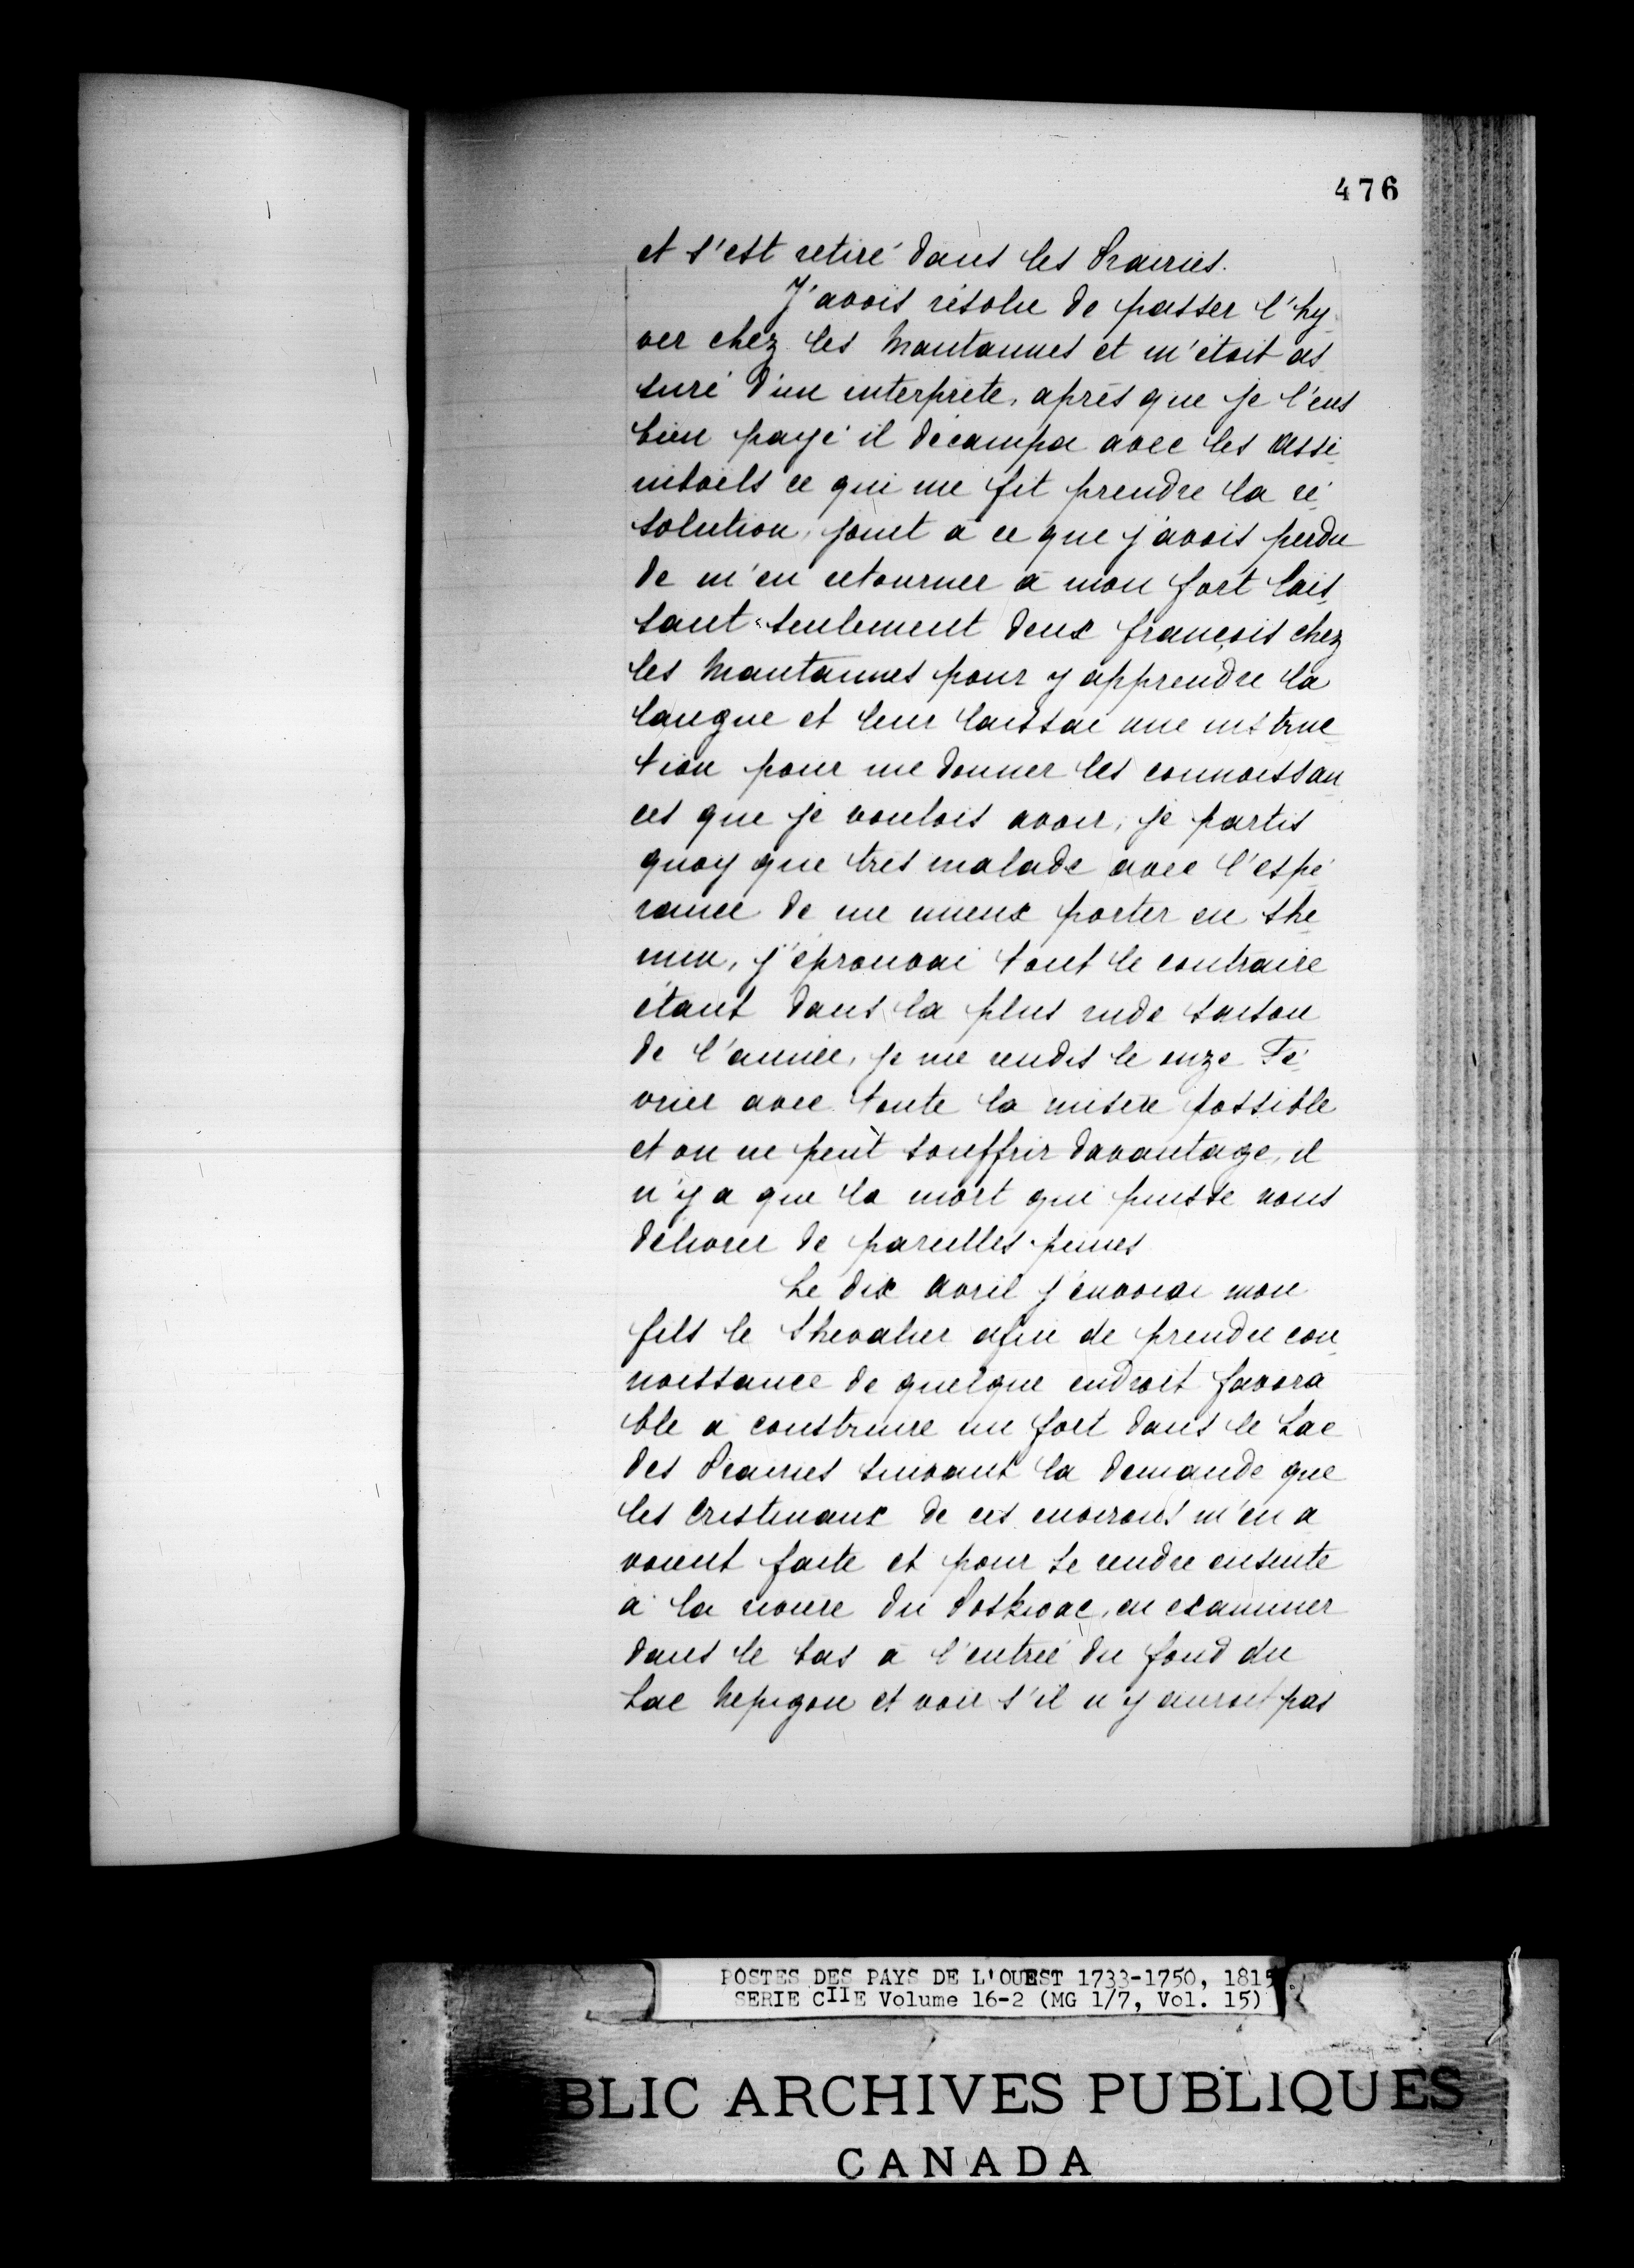 476
et s'est retiré dans les Prairies.
J'avois résolu de passer l'hy
ver chez les Mantannes et m'étoit as
suré d'un interprète, après que je l'eus
bien payé il décampa avec les assi
niboels ce qui me fit prendre la ré
solution, joint à ce que j'avois perdu
de m'en retourner à mon fort lais
sant seulement deux françois chez
les Mantannes pour y apprendre la
langue et leur laissai une instruc
tion pour me donner les connoissan
ces que je voulois avoir, je partis
quoy que très malade avec l'espé
rance de me mieux porter en che
min, j'éprouvai tout le contraire
étant dans la plus rude saison
de l'année, je me rendis le onze Fé
vrier avec toute la misère possible
et on ne peut souffrir davantage, il
n'y a que la mort qui puisse nous
délivrer de pareilles peines
Le dix avril j'envoiai mon
fils le Chevalier afin de prendre con
noissance de quelque endroit favora
ble à construire un fort dans le Lac
des Prairies suivant la demande que
les Cristinaux de ces environs m'en a
voient faite et pour se rendre ensuite
à la rivière du Poskioac, en examiner
dans le bas à l'entrée du fond du
Lac Nepigon et voir s'il n'y auroit pas
POSTES DES PAYS DE L'OUEST 1733-1750, 1815
SERIE CIIE Volume 16-2 (MG 1/7, Vol. 15)
BLIC ARCHIVES PUBLIQUES
CANADA